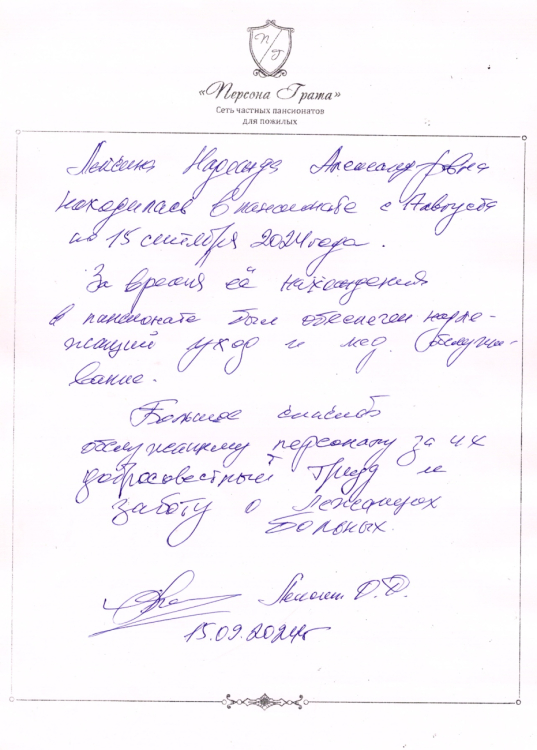 П Г
«Персона Грата»
Сеть частных пансионатов
для пожилых
Надежда Александровна
находилась в пансионате с 7 августа
по 15 сентября 2024 года.
За время её нахождения
в пансионате был обеспечен надле-
жащий уход и мед. обслужи-
вание.
Большое спасибо
обслуживающему персоналу за их
добросовестный труд и
заботу о лежащих
больных.
15.09.2024г